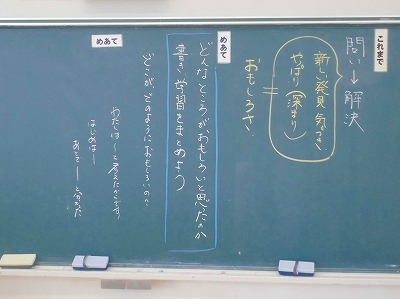 これまで
問い→解決
新しい発見 気づき
やっぱり(深まり)
=
おもしろさ
めあて
どんなところが、おもしろいと思ったのか
書き、学習をまとめよう
どこが、どのようにおもしろいのか
めあて
わたしは〜と考えたからです。
はじめは〜
あと〜と分かった